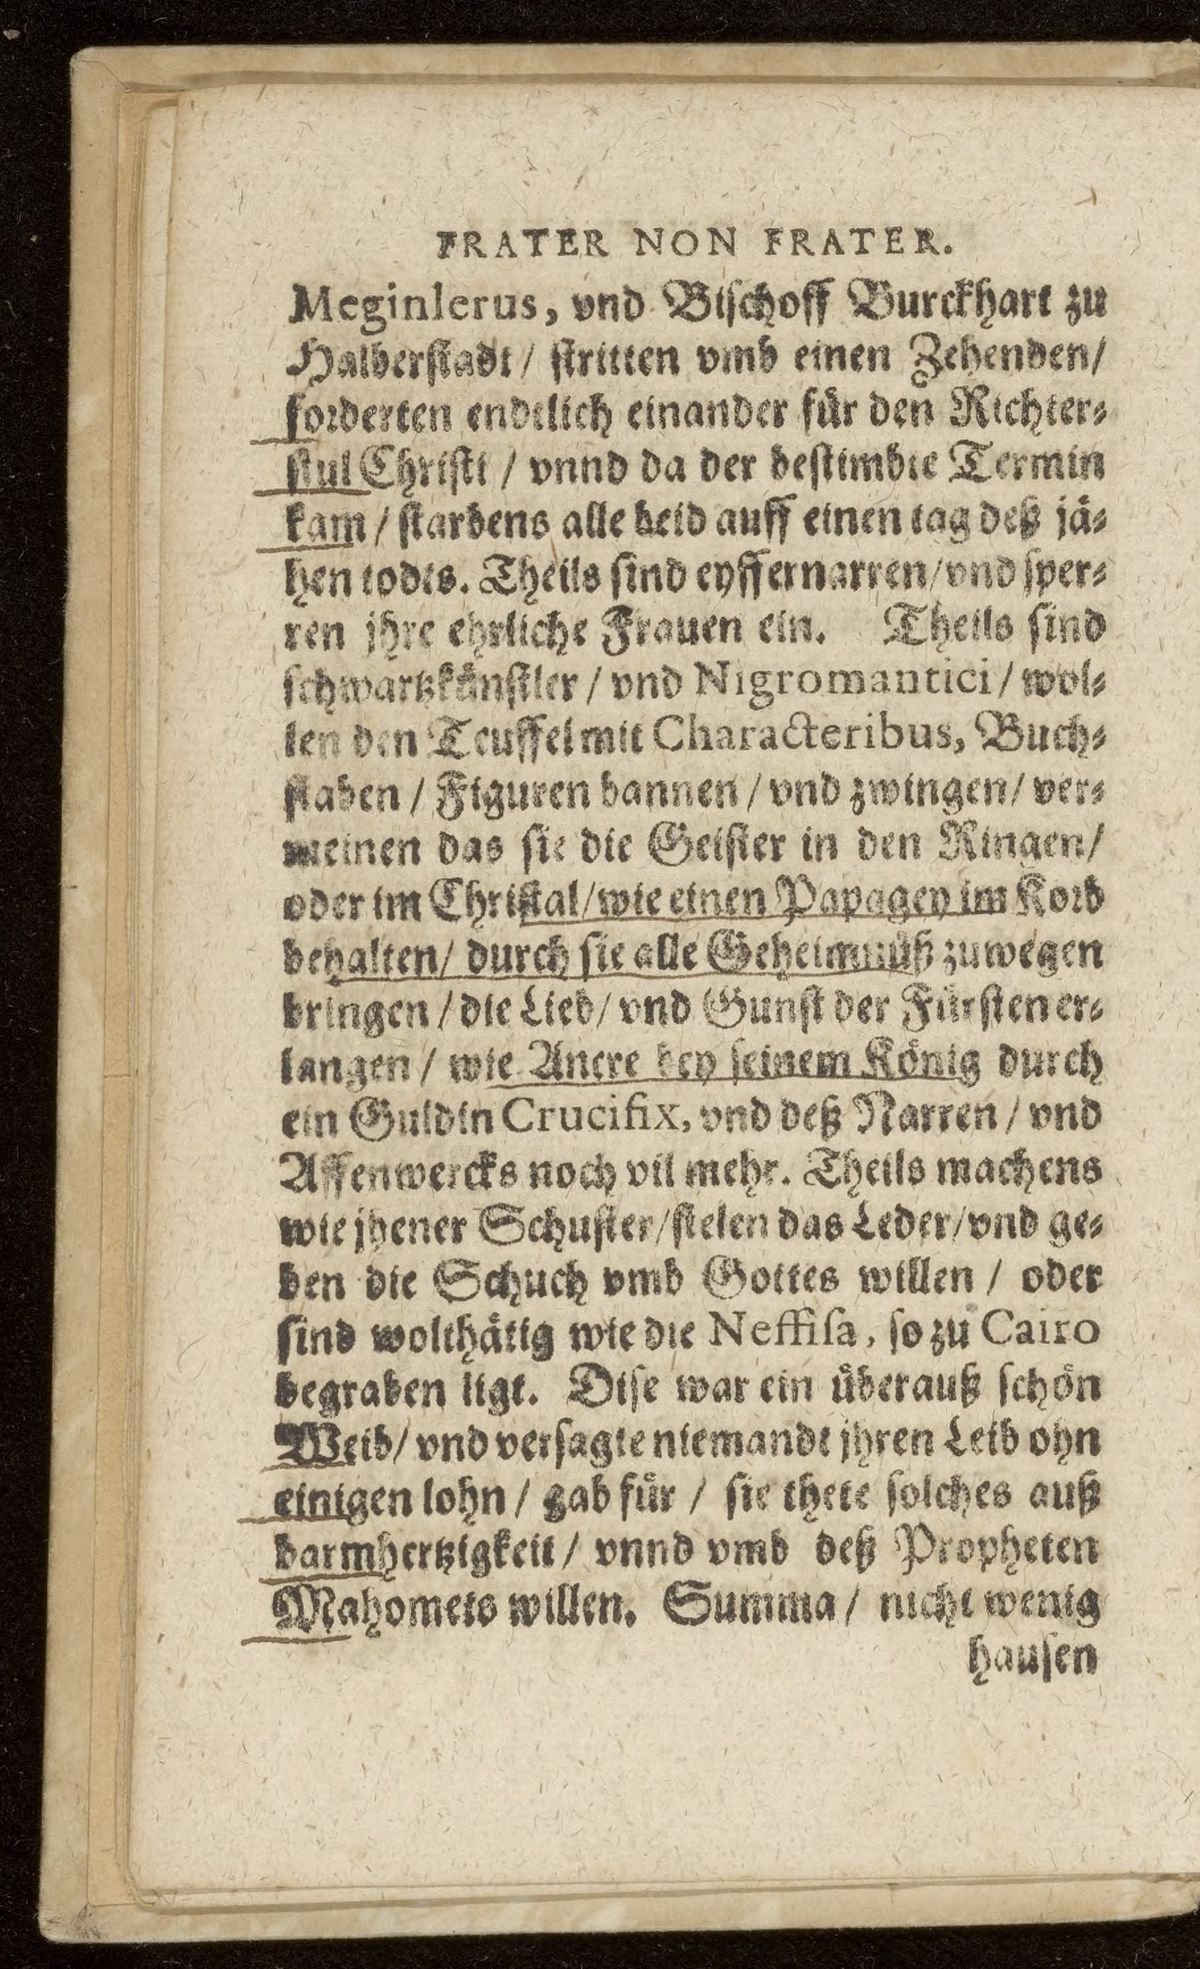 FRATER NON FRATER.
Meginlerus, vnd Bischoff Burckhart zu
Halberstadt / stritten vmb einen Zehenden /
forderten endtlich einander für den Richter-
stul Christi / vnnd da der bestimbte Termin
kam / starbens alle beid auff einen tag deß jä-
hen todts. Theils sind eyffernarren / vnd sper-
ren jhre ehrliche Frauen ein. Theils sind
schwartzkünstler / vnd Nigromantici / wol-
len den Teuffel mit Characteribus, Buch-
staben / Figuren bannen / vnd zwingen / ver-
meinen das sie die Geister in den Ringen /
oder im Christal / wie einen Papagey im Korb
behalten / durch sie alle Geheimnuß zuwegen
bringen / die Lieb / vnd Gunst der Fürsten er-
langen / wie Ancre bey seinem König durch
ein Guldin Crucifix, vnd deß Narren / vnd
Affenwercks noch vil mehr. Theils machens
wie jhener Schuster / stelen das Leder / vnd ge-
ben die Schuch vmb Gottes willen / oder
sind wolthätig wie die Neffisa, so zu Cairo
begraben ligt. Dise war ein überauß schön
Weib / vnd versagte niemandt jhren Leib ohn
einigen lohn / gab für / sie thete solches auß
barmhertzigkeit / vnnd vmb deß Propheten
Mahomets willen. Summa / nicht wenig
hausen